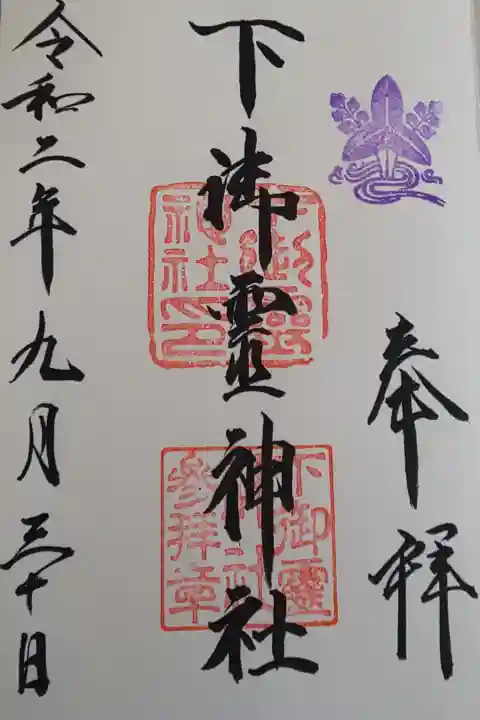 奉拝
下御靈神社
下御靈神社印
下御靈神社参拝章
令和二年九月三十日